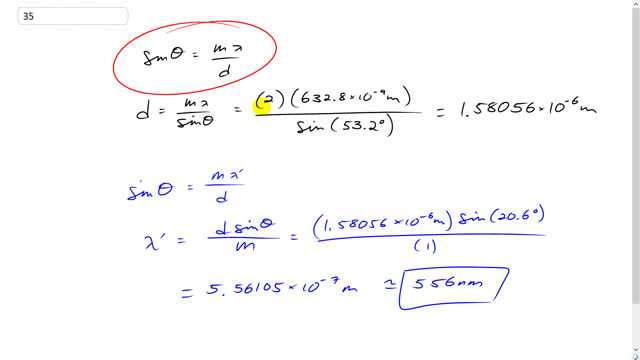 35
sinθ = mλ/d
d = mλ/sinθ = (2)(632.8×10⁻⁹m)/sin(53.2°) = 1.58056×10⁻⁶m
sinθ = mλ'/d
λ' = d sinθ/m = (1.58056×10⁻⁶m) sin(20.6°)/(1)
= 5.56105×10⁻⁷m ≃ 556nm